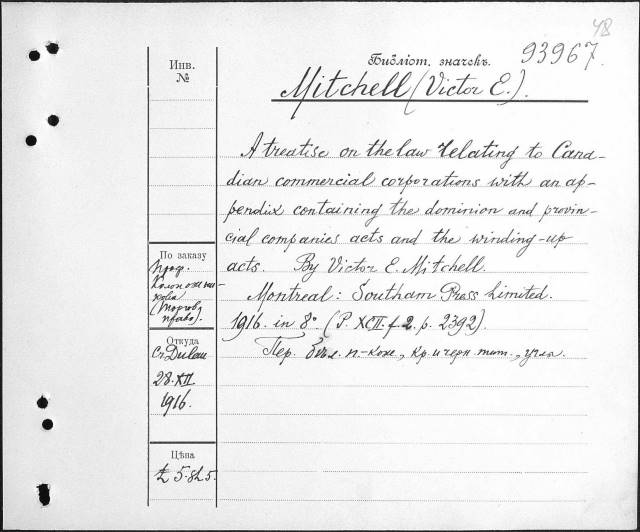 48
93967.
Библіот. значекъ.
Mitchell (Victor E.).
A treatise on the law relating to Cana-
dian commercial corporations with an ap-
pendix containing the dominion and provin-
cial companies acts and the winding-up
acts. By Victor E. Mitchell.
Montreal: Southam Press Limited.
1916. in 8°. (P. XCII. f 2. p. 2392).
Пер. бѣл. п.-кож., кр. и черн. тит.,
Инв.
№
По заказу
Проф.
(торгов.
право).
Откуда
Dulau
28.XII.
1916.
Цѣна